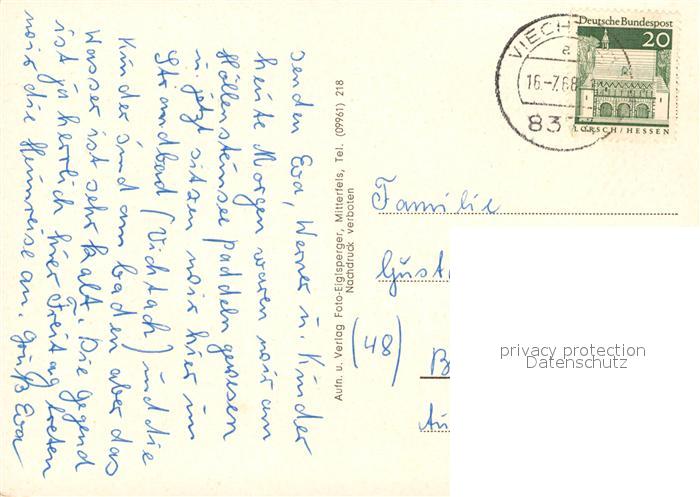 senden Eva, Werner u. Kinder
heute Morgen waren wir am
Höllensteinsee paddeln gewesen
u. jetzt sitzen wir hier im
Strandbad (Vichtach) und die
Kinder sind am baden aber das
Wasser ist sehr kalt. Die Gegend
ist ja herrlich hier Freitag treten
wir die Heimreise an. Gruß Eva
Aufn. u. Verlag Foto-Eiglsperger, Mitterfels, Tel. (09961) 218
Nachdruck verboten
VIECHT
a
16.-7.68
837
Deutsche Bundespost
20
LORSCH/HESSEN
Familie
Gust
(48) B
privacy protection
Datenschutz